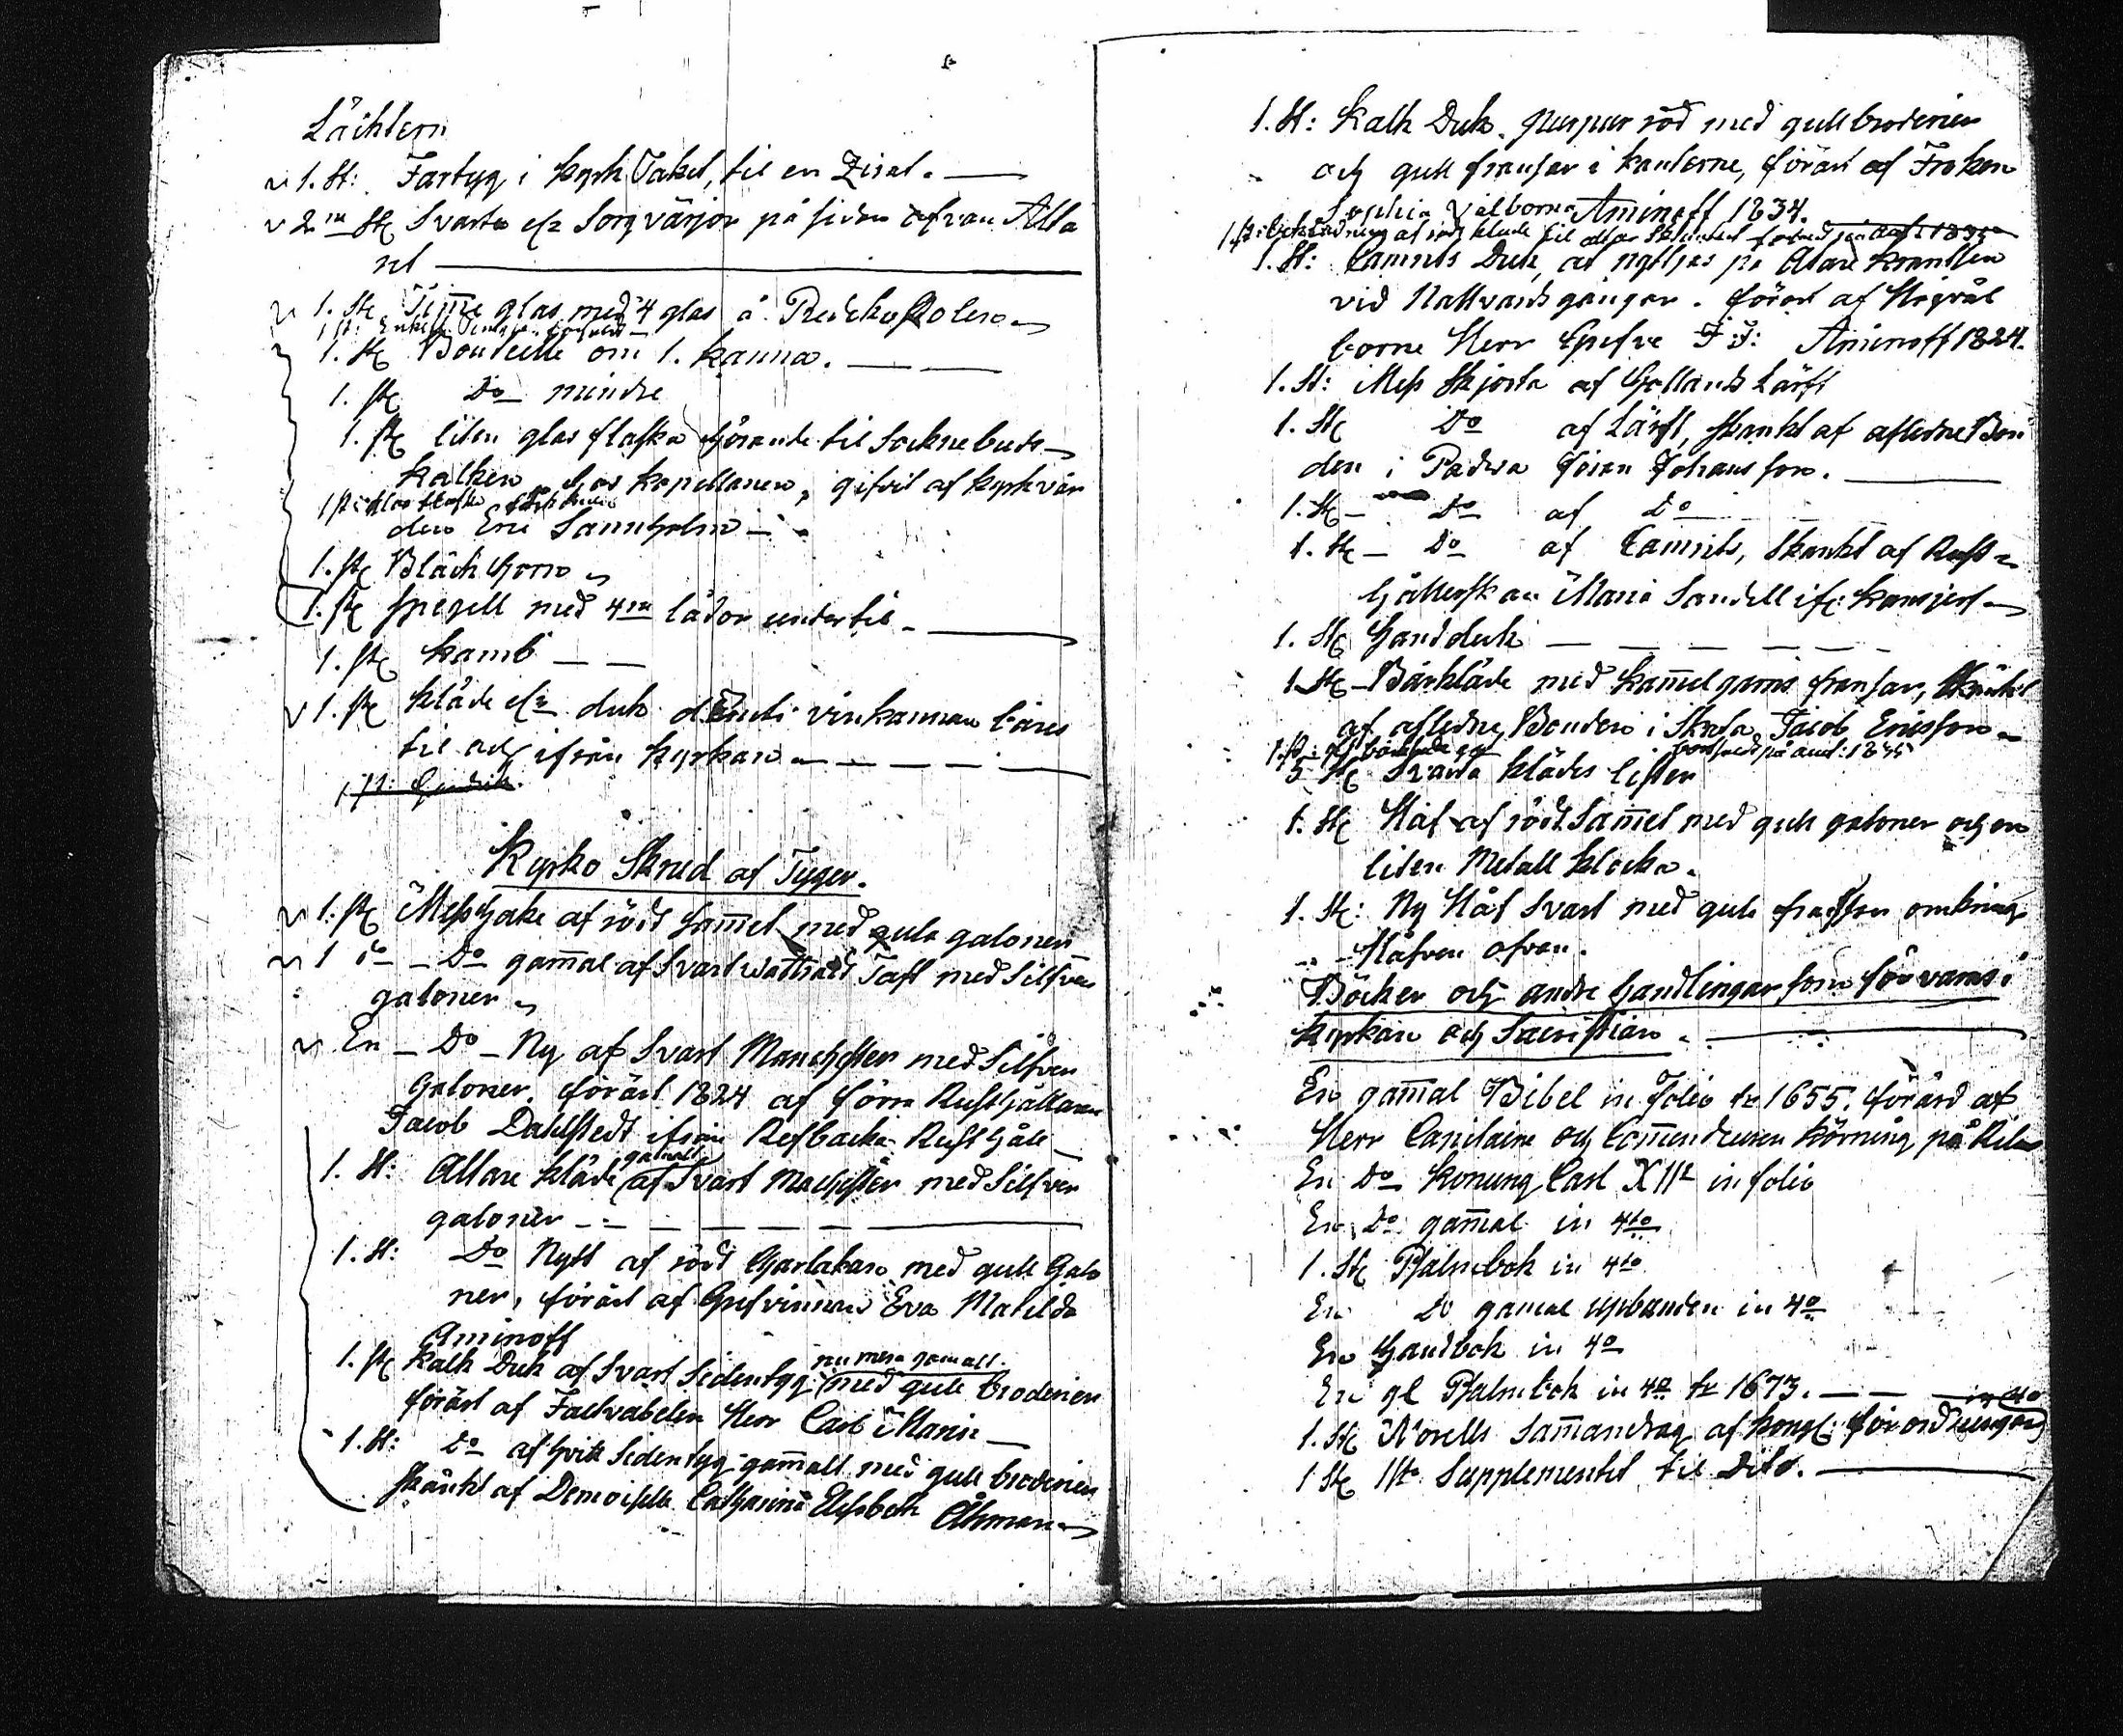 Läcktern
1. St: Fartyg i kyrk Taket, til en Zirat.
2ne St Svarta ell Sorg värjor på sidan ofvan Alta
ret
1. St Time glas med 4 glas å Predikostolen
1. St Bouteille om 1. kanna.
1. St Do mindre
1. St liten glas flaska hörande til Sockne buds
kalken hos kapellanen, gifvit af kyrk vär
1 st: glas flaska
den Eric Sannholm
1. St Bläck horn
1. St Spegell med 4ra lådor undertil
1. St kamb
1. St kläde ell duk deruti vinkannan bäres
til och ifrån kyrkan
1 st: handduk.
Kyrko Skrud af Tyger.
1. St Mess hake af rödt Sammet med gula galoner
1 do Do gammal af Svart wattrad Taft med Silfver
galoner
En Do Ny af Svart Manchester med Silfver
Galoner. förärt 1824 af förra Rusthållaren
Jacob Dahlstedt ifrån Refbacka Rusthåll
1. St: Altare kläde gamalt af Svart Machester med Silfver
galoner
1. St: Do Nytt af rödt Skarlakan med gull Galo
ner, förärt af Grefvinnan Eva Matilda
Aminoff
nu mera gamall.
1. St kalk Duk af Svart Sidentyg med gull broderier
förärt af Fältväbelen Herr Carl Marin
1. St: Do af hvitt Sidentyg gammalt med gull broderier
skänkt af Demoiselle Catharina Elisabeth Åhman
1. St: kalk Duk. purpur röd med gull broderier
och gull fransar i kanterne, förärt af Fröken
Sophia Välborna Aminoff 1834.
1 st: af rödt kläde til altar
1. St: Camrits Duk, at nyttjas på Altare krantsen
vid Nattvards gångar. förärt af Högväl
borne Herr Grefve F J: Aminoff 1824.
1. St: Mess Skjorta af Hollands Lärft
1. St Do af Lärft, skänkt af afledne Bon
den i Padva Göran Johansson.
1. St Do af Do
1. St Do af Camrits, Skänkt af Rust
hållerskan Maria Sandell
1. St Handduk
1 St Bårkläde med kamelgarns fransar, Skänkt
af afledne Bonden i Skata Jacob Ericsson
på auct: 1835
5 St Svarta klädes lister
1. St Håf af rödt Sammet med gull galoner och en
liten Metall klocka.
1. St: Ny Håf Svart med gula fransar omkring
Håfven ofvan.
Böcker och andre handlingar som förvaras i
kyrkan och Sacristian.
En gammal Bibel in Folio tr 1655. förärd af
Herr Capitaine och Commendeuren Körning på Rilax
En Do Konung Carl XIIs in folio
En Do gammal in 4to
1. St Psalmbok in 4to
En Do gamal upbunden in 4o
En Handbok in 4o
En gl Psalmbok in 4o tr 1673.
in 4o
1. St Norells Sammandrag af kongl: förordningar
1 St 1sta Supplementet til Dito.